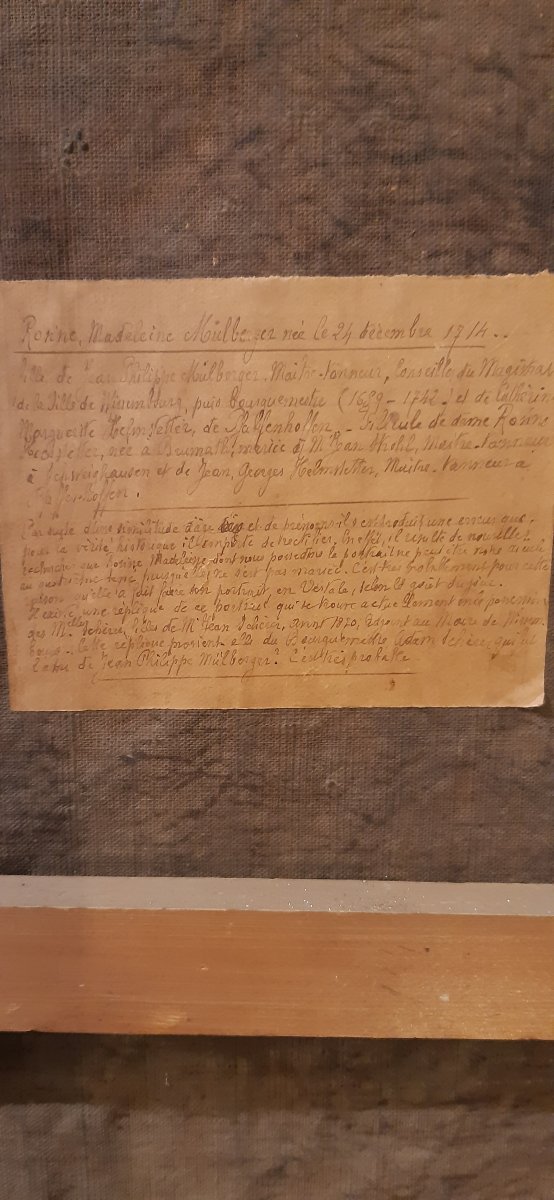 Ronne, Madeleine Mülberger née le 24 décembre 1714..
fille de Jean Philippe Mülberger. Maître-tanneur, Conseille du Magistrat
de la Ville de Wissembourg, puis Bourguemestre (1689 - 1742) et de Catherine
Marguerite Helmstetter, de - Filleule de dame Ronne
née à Brumath, mariée à M. Jean Maître-tanneur
à et de Jean, Georges Helmstetter, Maître-tanneur à
Par suite d'une similitude d'âge et de prénoms il s'est produit une erreur que,
pour la vérité historique il importe de rectifier. En effet, il résulte de nouvelles
recherches que Madeleine, dont nous possédons le portrait ne peut être notre aïeule
au degré, puisqu'elle ne s'est pas mariée. C'est très probablement pour cette
raison qu'elle a fait faire son portrait en Vestale, selon le goût du jour.
Il existe une réplique de ce portrait qui se trouve actuellement en la possession
des Mlles Schérer, filles de Mr Jean Schérer, avant 1870, adjoint au Maire de Wissem-
bourg. Cette réplique provient elle du Bourguemestre Adam Schérer, qui fut
de Jean Philippe Mülberger? C'est très probable